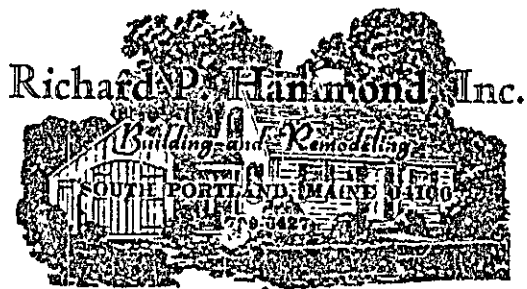 Richard P. Hammond, Inc.
Building and Remodeling
SOUTH PORTLAND, MAINE 04106